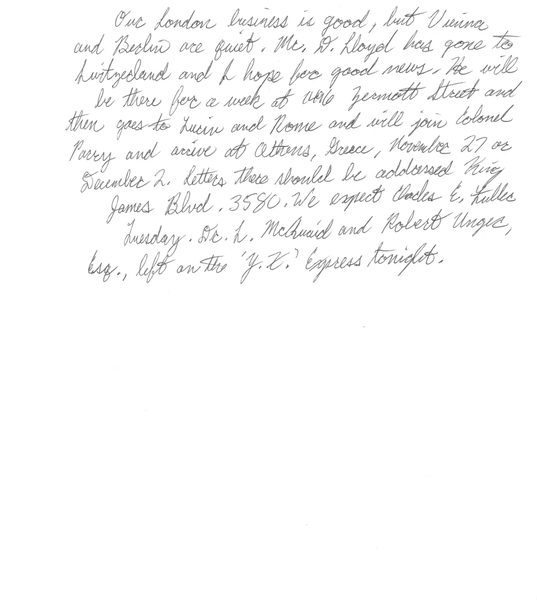 Our London business is good, but Vienna
and Berlin are quiet. Mr. D. Lloyd has gone to
Switzerland and I hope for good news. He will
be there for a week at 1496 Zermott Street and
then goes to Turin and Rome and will join Colonel
Parry and arrive at Athens, Greece, November 27 or
December 2. Letters there should be addressed King
James Blvd. 3580. We expect Charles E. Fuller
Tuesday. Dr. L. McQuaid and Robert Unger,
Esq., left on the 'Y.X.' Express tonight.